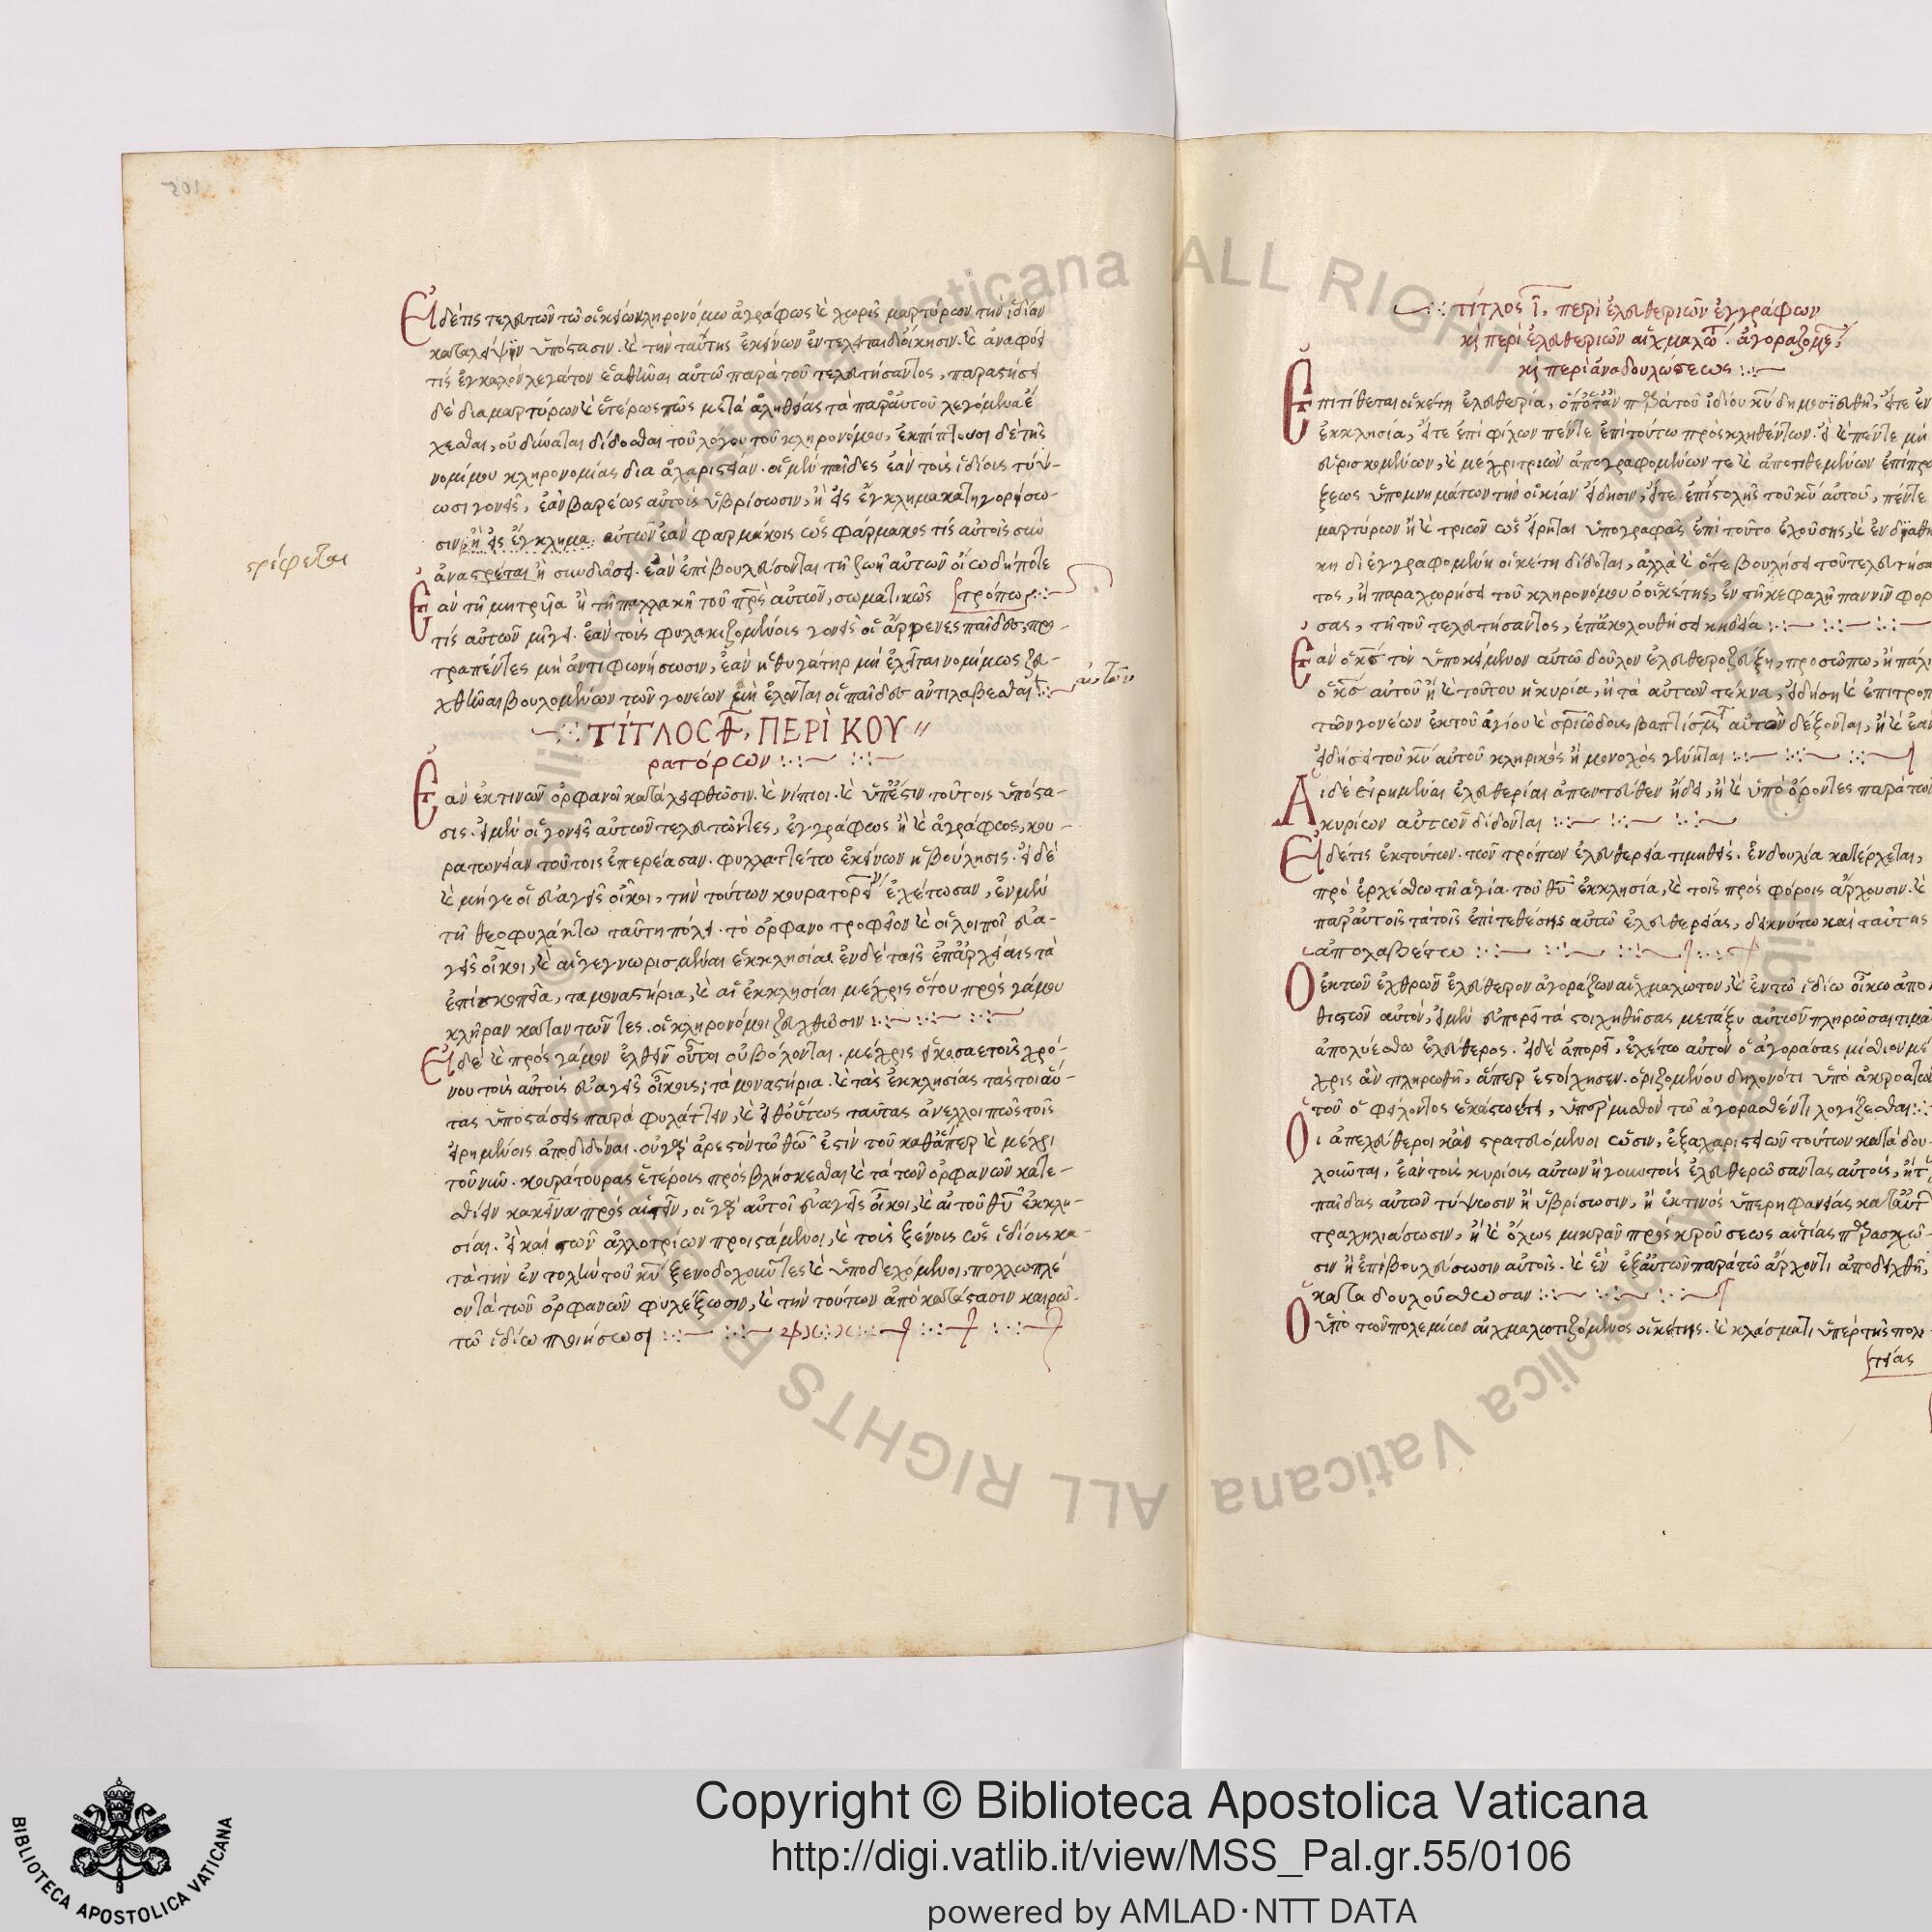 105
Εἰ δέ τις τελευτῶν τῶ οἰκείω κληρονόμω ἀγράφως καὶ χωρὶς μαρτύρων τὴν ἰδίαν
καταλείψῃ ὑπόστασιν. καὶ τὴν ταύτης ἐκείνων ἐντελεῖται διοίκησιν. καὶ ἀναφύσ
τις ἐγκαλῶν λεγάτον ἐᾶσθαι αὐτῶ παρὰ τοῦ τελευτήσαντος, παραστήσει
δὲ δια μαρτύρων καὶ ἑτέρως πῶς μετὰ ἀληθείας τὰ παρ' αὐτοῦ λεγόμενα ἐ
χεσθαι, οὐ δύναται δίδοσθαι τοῦ λόγου τοῦ κληρονόμου, ἐκπίπτουσι δὲ τῆς
νομίμου κληρονομίας δια ἀχαριστείαν. οἱ μὲν παῖδες ἐὰν τοὺς ἰδίους τύψ-
ωσι γονεῖς, ἐὰν βαρέως αὐτοὺς ὑβρίσωσιν, ἢ εἰς ἔγκλημα κατηγορήσω-
σιν ἢ εἰς ἔγκλημα αὐτῶν ἐὰν φαρμάκοις ὡς φάρμακος τίς αὐτοῖς συν
στρέφεται
ἀναστρέται ἢ συνδιάσει. ἐὰν ἐπιβουλεύσονται τῆ ζωῆ αὐτῶν οἵω δήποτε
τρόπω
Ἐὰν τῆ μητρυϊᾶ ἢ τῆ παλλακῆ τοῦ πρς αὐτῶν, σωματικῶς
τίς αὐτῶν μίγει. ἐὰν τοῖς φυλακιζομένοις γονεῦσι οἱ ἄρρενες παῖδες, προ-
τραπέντες μὴ ἀντιφωνήσωσιν, ἐὰν ἡ θυγάτηρ μὴ ἕληται νομίμως ζευ-
χθῆναι βουλομένων τῶν γονέων μὴ ἕλονται οἱ παῖδες ἀντιλαβέσθαι
αὐτῶν
ΤΊΤΛΟΣ Θ, ΠΕΡῚ ΚΟΥ
ρατόρων
Ἐὰν ἐκτινῶν ὀρφανοὶ καταλειφθῶσιν. καὶ νήπιοι. καὶ ὕπεστιν τούτοις ὑπόστα-
σις. εἰ μὲν οἱ γονεῖς αὐτῶν τελευτῶντες, ἐγγράφως ἢ καὶ ἀγράφως, κου-
ρατωνείαν τούτοις ἐπερέασαν. φυλλαττέτω ἐκείνων ἡ βούλησις. εἰ δὲ
καὶ μήγε οἱ εὐαγεῖς οἶκοι, τὴν τούτων κουρατορείαν ἐχέτωσαν, ἐν μὲν
τῆ θεοφυλάκτω ταύτη πόλει. τὸ ὀρφανοτροφεῖον καὶ οἱ λοιποὶ εὐα-
γεῖς οἶκοι, καὶ αἱ γεγνωρισμέναι ἐκκλησίαι ἐν δὲ ταῖς ἐπαρχείαις τὰ
ἐπισκοπεῖα, τα μοναστήρια, καὶ αἱ ἐκκλησίαι μέχρις ὅτου πρὸς γάμου
κλῆραν καταντῶντες. οἱ κληρονόμοι ζευχθῶσιν
Εἰ δὲ καὶ πρὸς γάμον ἐλθεῖν οὗτοι οὐ βούλονται. μέχρις εἰκοσαετοῦς χρό-
νου τοὺς αὐτοὺς εὐαγεῖς οἴκους, τὰ μοναστήρια. καὶ τὰς ἐκκλησίας τὰς τοιαύ-
τας ὑποστάσεις παρὰ φυλάττειν, καὶ εἶθ' οὕτως ταύτας ἀνελλοιπῶς τοῖς
εἰρημένοις ἀποδιδόναι. οὐ γὰρ ἀρεστὸν τῶ θῶ ἐστὶν τοῦ καθάπερ καὶ μέχρι
τοῦ νῦν. κουράτουρας ἑτέροις προσβλήσκεσθαι καὶ τὰ τῶν ὀρφανῶν κατε-
σθίειν κἀκεῖνα πρὸς αἰτεῖν, οἱ γὰρ αὐτοὶ εὐαγεῖς οἶκοι, καὶ αἱ τοῦ θυ ἐκκλη-
σίαι. εἰ καὶ τῶν ἀλλοτρίων προϊστάμενοι, καὶ τοὺς ξένους ὡς ἰδίους κα-
τὰ τὴν ἐντολὴν τοῦ κυ ξενοδοχοῦντες καὶ ὑποδεχόμενοι, πολλῶ πλέ
ον τὰ τῶν ὀρφανῶν φυλάξωσιν, καὶ τὴν τούτων ἀποκατάστασιν καιρῶ
τῶ ἰδίω ποιήσωσι
τίτλος ι, περὶ ἐλευθεριῶν ἐγγράφων
καὶ περὶ ἐλευθεριῶν αἰχμαλώτ. ἀγοραζομέ
καὶ περὶ ἀναδουλώσεως
Ἐπιτίθεται οἰκέτη ἐλευθερία, ὁπόταν παρὰ τοῦ ἰδίου κυ δημοσιευθῆ, εἴτε ἐν
ἐκκλησία, εἴτε ἐπὶ φίλων πέντε ἐπὶ τούτω προσκληθέντων. εἰ καὶ πέντε μὴ
εὑρισκομένων, καὶ μέχρι τριῶν ἀπογραφομένων τε καὶ ἀποτιθεμένων ἐπὶ πρα
ξεως ὑπομνημάτων τὴν οἰκίαν εἴδησιν, εἴτε ἐπιστολῆς τοῦ κυ αὐτοῦ, πέντε
μαρτύρων ἢ καὶ τριῶν ὡς εἴρηται ὑπογραφὰς ἐπὶ τοῦτο ἐχούσης, καὶ ἐν διαθή
κη δι' ἐγγραφομένη οἰκέτη δίδοται, ἀλλὰ καὶ ὅτε βουλήσει τοῦ τελευτήσα
τος, ἢ παραχωρήσει τοῦ κληρονόμου ὁ οἰκέτης, ἐν τῆ κεφαλῆ παννὶν φορ
σας, τῆ τοῦ τελευτήσαντος, ἐπακολουθήσει κηδεία
Ἐὰν ὁ κς τὸν ὑποκείμενον αὐτῶ δοῦλον ἐλευθεροζεύξη, προσώπω, ἢ πάλι
ὁ κς αὐτοῦ ἢ καὶ τούτου ἡ κυρία, ἢ τὰ αὐτῶν τέκνα, εἰδήσει καὶ ἐπιτροπ
τῶν γονέων ἐκ τοῦ ἁγίου καὶ βαπτίσμτ αὐτὸν δέξονται, ἢ καὶ ἐὰν
εἰδήσει τοῦ κυ αὐτοῦ κληρικὸς ἢ μοναχὸς γένηται
Αἱ δὲ εἰρημέναι ἐλευθερίαι ἀπεντεῦθεν ἤδει, ἢ καὶ ὑπὸ ὅροντες παρὰ τῶν
κυρίων αὐτῶν δίδονται
Εἰ δέ τις ἐκ τούτων. τῶν τρόπων ἐλευθερεία τιμηθεὶς. ἐν δουλία κατέρχεται,
προερχέσθω τῆ ἁγία. τοῦ θυ ἐκκλησία, καὶ τοῖς πρὸς φόροις ἄρχουσιν. καὶ
παρ' αὐτοῖς τὰ τοῖς ἐπιτεθείσης αὐτῶ ἐλευθερείας, δεικνύτω καὶ ταύτης
ἀπολαβέτω
Ὁ ἐκ τῶν ἐχθρῶν ἐλεύθερον ἀγοράζων αἰχμάλωτον, καὶ ἐν τῶ ἰδίω οἴκω ἀπο
θιστῶν αὐτόν, εἰ μὲν εὐπορεῖ τὰ στοιχηθήσας μετάξυ αὐτῶν πληρῶσαι τιμα
ἀπολυέσθω ἐλεύθερος. εἰ δὲ ἀπορεῖ, ἐχέτω αὐτὸν ὁ ἀγοράσας μίσθιον μέ
χρις ἂν πληρωθῆ, ἅπερ ἐστοίχησεν. ὁριζομένου δηλονότι ὑπὸ ἀκροατῶν
τοῦ ὀφείλοντος ἑκάστω ἔτει, ὑπὲρ μισθὸν τῶ ἀγορασθέντι λογίζεσθαι
Οἱ ἀπελεύθεροι κἂν στρατευόμενοι ὦσιν, ἐξ ἀχαριστειῶν τούτων καταδου-
λοῦνται, ἐὰν τοὺς κυρίους αὐτῶν ἤγουν τοὺς ἐλευθερώσαντας αὐτούς, ἢ τ
παῖδας αὐτῶν τύψωσιν ἢ ὑβρίσωσιν, ἢ ἐκ τινὸς ὑπερηφανείας κατ' αὐτ
τραχηλιάσωσιν, ἢ καὶ ὅλως μικρὰν πρὸς κρούσεως αἰτίας παράσχω-
σιν ἢ ἐπιβουλεύσωσιν αὐτοῖς. καὶ ἐν ἐξ αὐτῶν παρὰ τῶ ἄρχοντι ἀποδειχθῆ,
καταδουλούσθωσαν
Ὁ ὑπὸ τῶν πολεμίων αἰχμαλωτιζόμενος οἰκέτης. καὶ κλάσματι ὑπὲρ τῆς πολι
τείας
Copyright © Biblioteca Apostolica Vaticana
http://digi.vatlib.it/view/MSS_Pal.gr.55/0106
powered by AMLAD·NTT DATA
BIBLIOTECA APOSTOLICA VATICANA